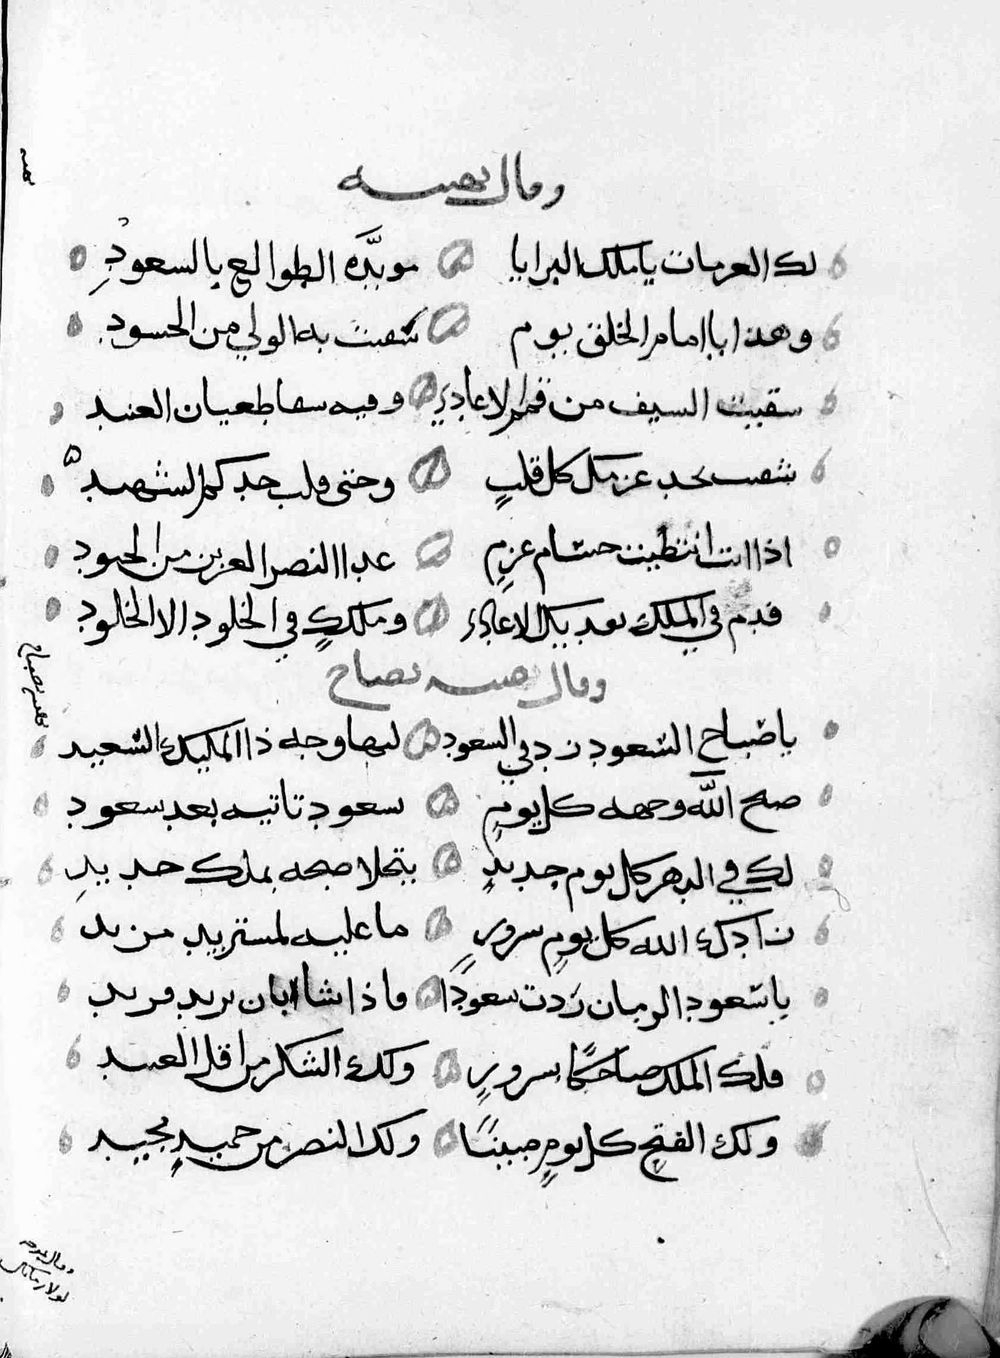 وقال يهنيه
لك العزمات يا ملك البرايا مويده الطوالع بالسعود
وهذا يا امام الخلق يوم شفيت به الولي من الحسود
سقيت السيف من قمم الاعادي وفيه سقا طعيان العنيد
شققت بحد عزمك كل قلب وحتى قلب حدكم الشهيد
اذا انت انتظيت حسام عزم غدا النصر العزيز من الجنود
فدم في الملك تهديك الاعادي وملكك في الخلود الا الخلود
وقال يهنيه بصباح
يا صباح السعود زد في السعود لبها وجه ذا المليك السعيد
صبح الله وجهه كل يوم سعود تاتيه بعد سعود
لك في الدهر كل يوم جديد يتجلا صبحه بملك جديد
زادك الله كل يوم سرور ما عليه لمستزيد مزيد
يا سعود الزمان زدت سعودا فاذا شا ان يزيد فزيد
فلك الملك ضاحكا بسرور ولك الشكر من اقل العبيد
ولك الفتح كل يوم مبينا ولك النصر من حميد مجيد